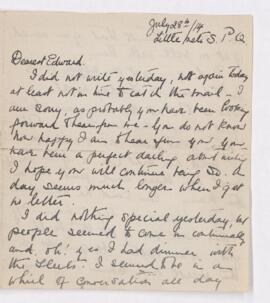 July 28th/14
Little Metis P Q
Dearest Edward.
I did not write yesterday, not again today
at least not in time to catch the mail - I
am sorry, as probably you have been looking
forward to hear from me - You do not know
how happy I am to hear from you, you
have been a perfect darling about writing
I hope your will continue being so. A
day seems much longer when I get
no letter.
I did nothing special yesterday, but
people seemed to come in continually
and, oh! yes I had dinner with
the. I seemed to be in a
whirl of conversation all day